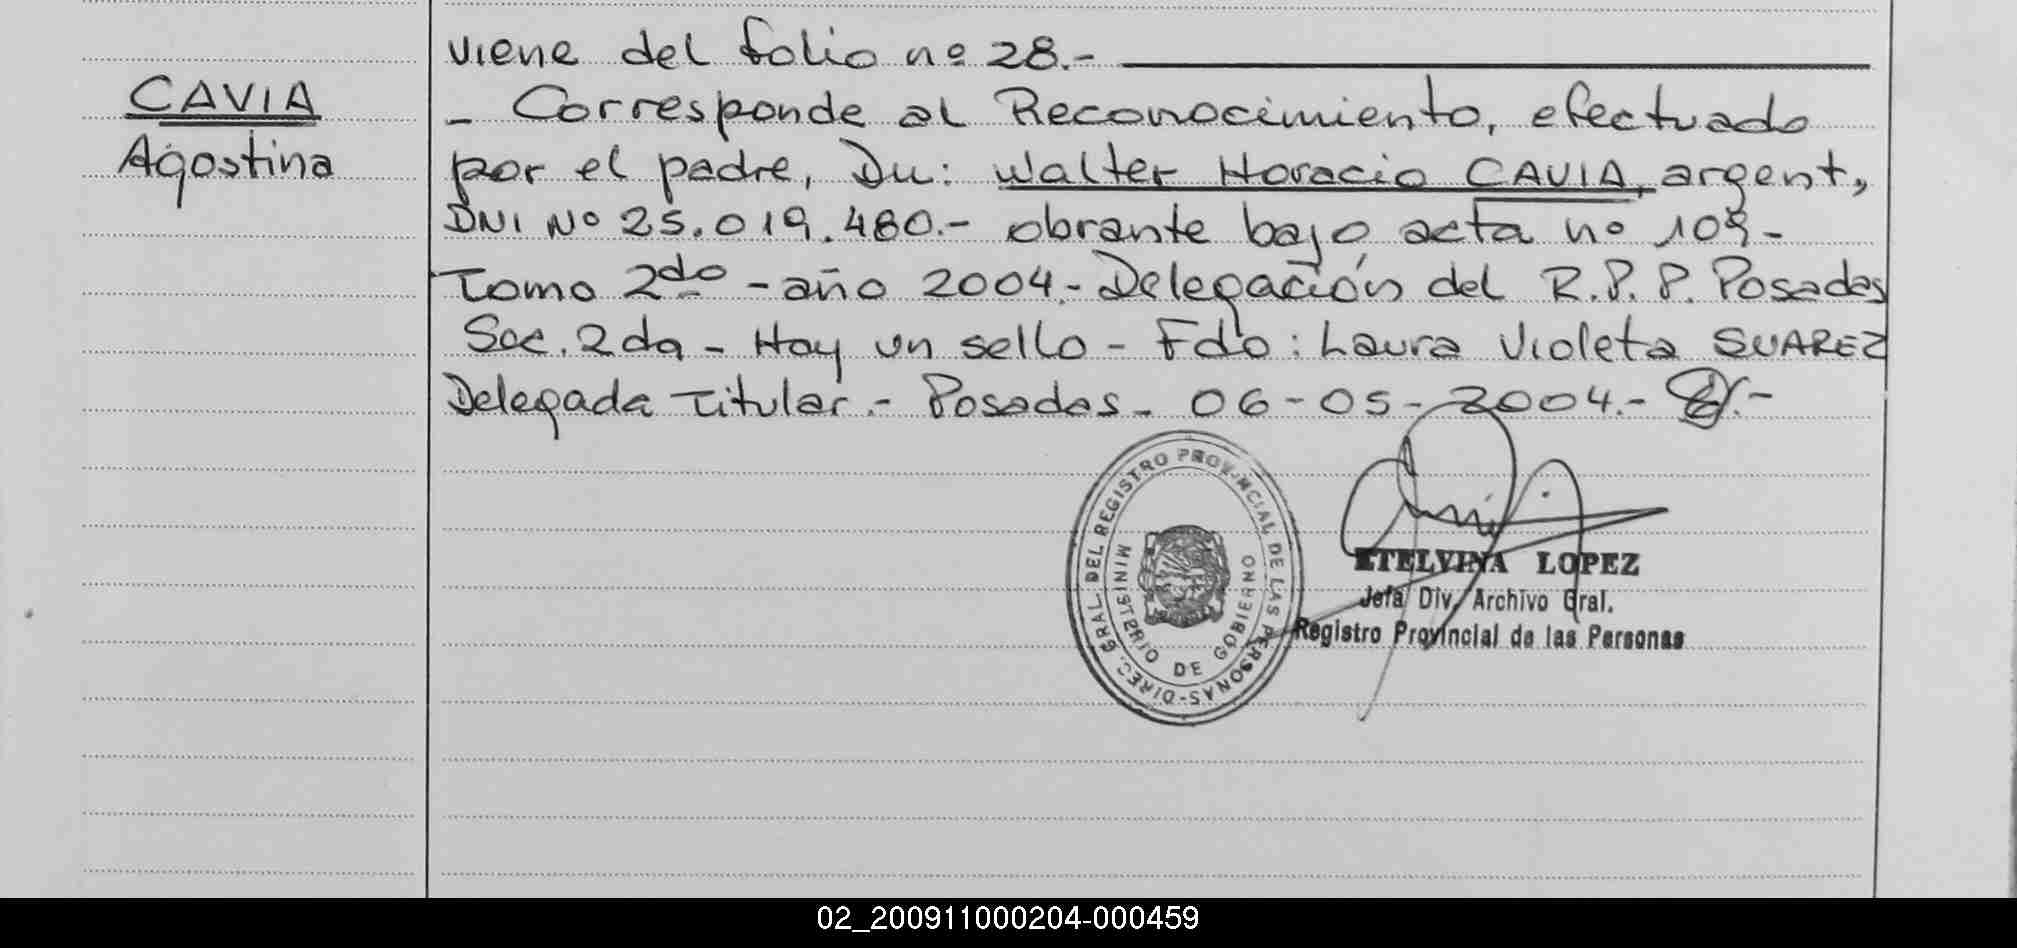 viene del folio nº 28.-
CAVIA
- Corresponde al Reconocimiento, efectuado
Agostina
por el padre, Dn: Walter Horacio CAVIA, argent,
DNI Nº 25.019.480.- obrante bajo acta nº 109-
Tomo 2do - año 2004.- Delegación del R.P.P. Posadas
Sec. 2da - Hay un sello - Fdo: Laura Violeta SUAREZ
Delegada Titular.- Posadas- 06-05-2004.-
DIREC. GRAL. DEL REGISTRO PROVINCIAL DE LAS PERSONAS-
MINISTERIO DE GOBIERNO
ETELVINA LOPEZ
Jefa Div. Archivo Gral.
Registro Provincial de las Personas
02_200911000204-000459